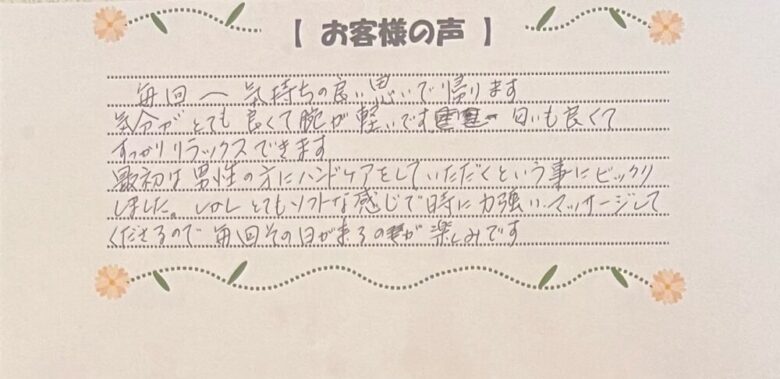 【 お客様の声 】
毎回 気持ちの良い思いで帰ります
気分がとても良くて腕が軽いです 匂いも良くて
すっかりリラックスできます
最初は男性の方にハンドケアをしていただくという事にビックリ
しました。しかしとてもソフトな感じで時に力強いマッサージして
くださるので毎回その日が来るのが楽しみです